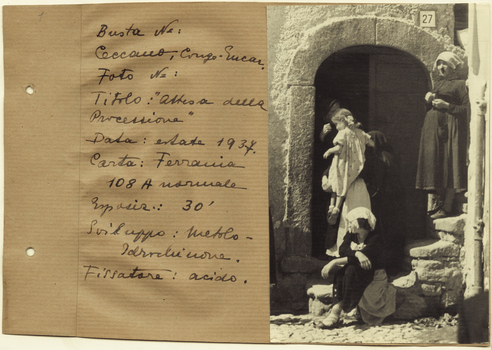 Busta No:
Ceccano, Corpo-Eucar.
Foto No:
Titolo: "Attesa della
Processione"
Data: estate 1937.
Carta: Ferrania
108 A normale
Esposiz.: 30'
Sviluppo: Metolo-
Idrochinone.
Fissatore: acido.
27